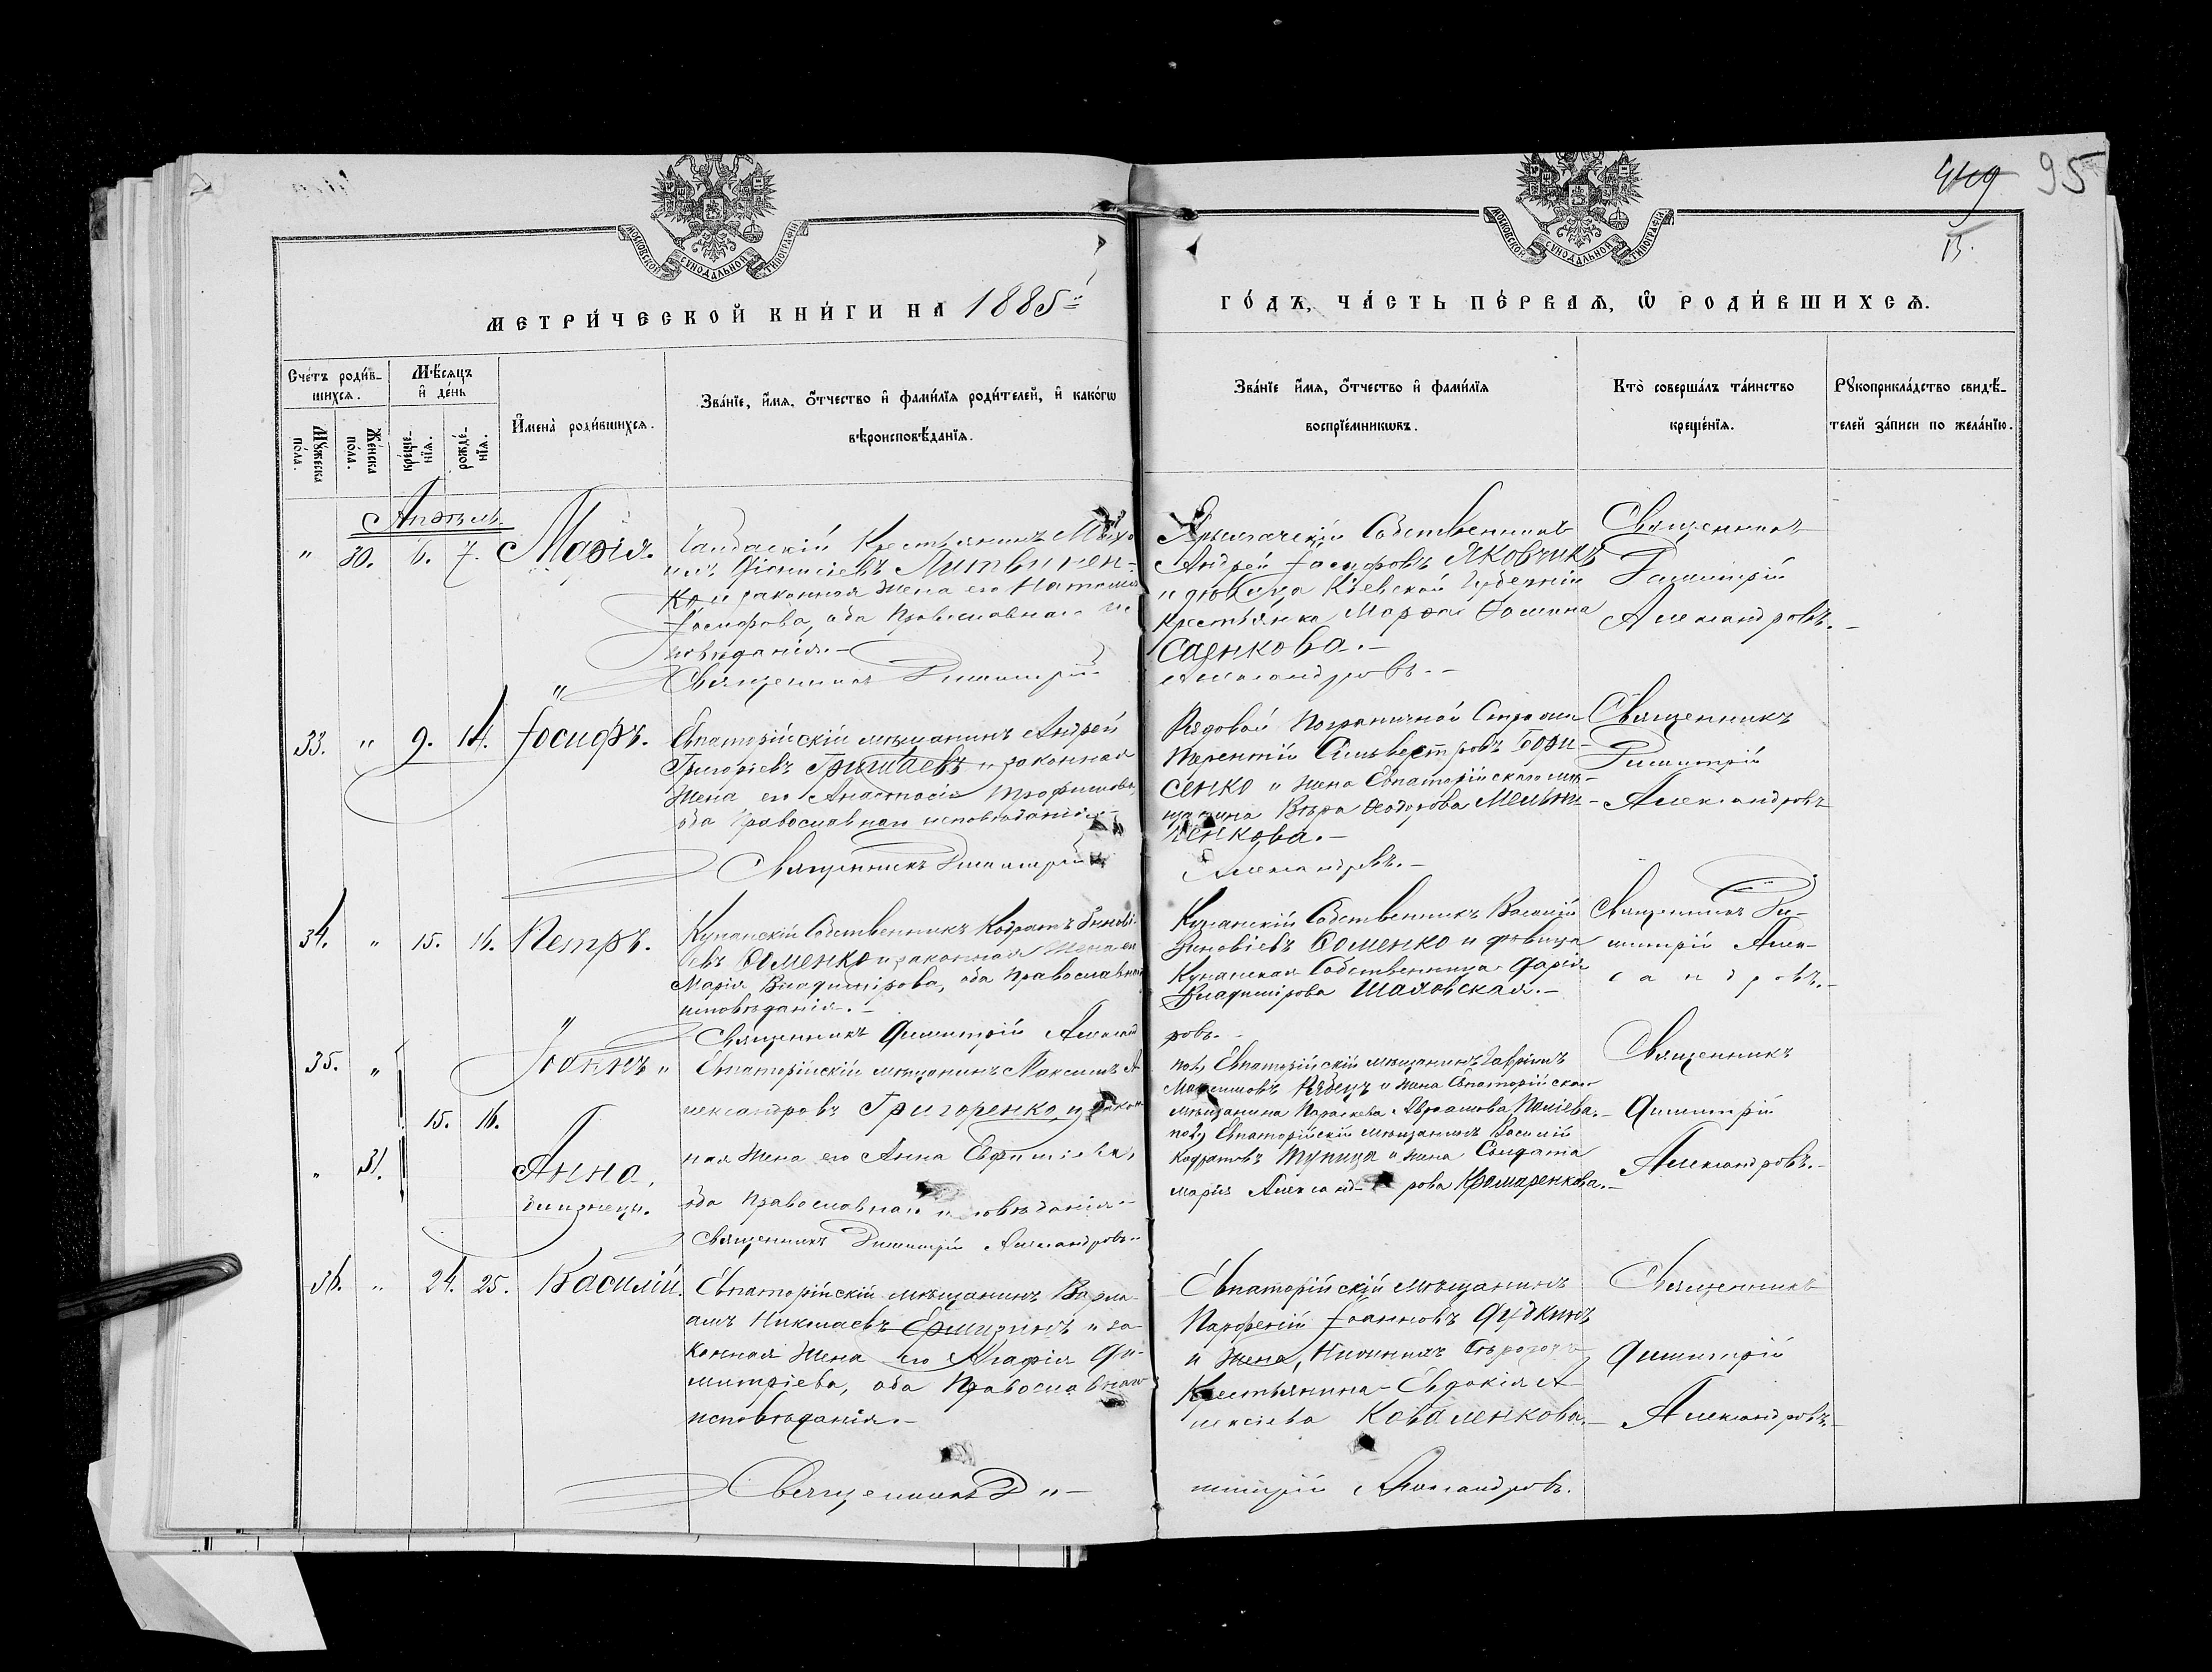 95
МОСКОВСКОЙ СѴНОДАЛЬНОЙ ТИПОГРАФІИ
МОСКОВСКОЙ СѴНОДАЛЬНОЙ ТИПОГРАФІИ
МЕТРИ́ЧЕСКОЙ КНИ́ГИ НА 1885
ГО́ДЪ, ЧА́СТЬ ПЕ́РВАѦ, Ѡ РОДИ́ВШИХСѦ.
Сче́тъ роди́в-
шихсѧ.
Мꙋ́жеска
по́ла.
Же́нска
по́ла.
Мѣ́сѧцъ
и҆ де́нь
креще́-
нїѧ.
рожде́-
нїѧ.
И҆мена̀ роди́вшихсѧ.
Зва́нїе, и҆́мѧ, ѻ҆́тчество и҆ фами́лїѧ роди́телей, и҆ како́гѡ
вѣроисповѣ́данїѧ.
Зва́нїе и҆́мѧ, ѻ҆́тчество и҆ фами́лїѧ
воспрїе́мникѡвъ.
Кто̀ соверша́лъ та́инство
креще́нїѧ.
Рꙋкоприкла́дство свидѣ́-
телей за́писи по жела́нїю.
Апрѣль
" 30. 6. 7. Марія.
Крестьянинъ
Литвинен-
ко и законная жена его
Іосифова, оба Православнаго ис
повѣданія.-
Священникъ Димитрій
Собственникъ
Андрей Іосифовъ Яковчикъ
и дѣвица Кіевской Губерніи
Крестьянка Марѳа Ѳомина
Саенкова.-
Александровъ.-
Священникъ
Димитрій
Александровъ.-
33. " 9. 14. Іосифъ.
Евпаторійскій мѣщанинъ Андрей
Григоріевъ и законная
жена его Анастасія Трофимова
оба Православнаго исповѣданія.-
Священникъ Димитрій
Рядовой Пограничной Стражи
Сильвестровъ Бори-
сенко и жена Евпаторійскаго мѣ-
щанина Вѣра Ѳеодорова Мельни-
ченкова.-
Александровъ.-
Священникъ
Димитрій
Александровъ
34. " 15. 16. Петръ.
Собственникъ Кодратъ Зинові-
евъ Ѳоменко и законная жена его
Марія Владимірова, оба Православнаго
исповѣданія.-
Священникъ Димитрій Александ
Собственникъ Василій
Зиновіевъ Ѳоменко и дѣвица
Собственница Дарія
Владимірова Шаховская.-
ровъ.-
Священникъ Ди-
митрій Алек-
сандровъ.-
35. " Іоаннъ "
15. 16.
" 31. Анна,
близнецы.
Евпаторійскій мѣщанинъ Максимъ А-
лександровъ Григоренко и закон-
ная жена его Анна Евфиміева,
оба Православнаго исповѣданія.-
Священникъ Димитрій Александровъ.
Евпаторійскій мѣщанинъ Гавріилъ
Максимовъ Рябецъ и жена Евпаторійскаго
мѣщанина Параскева Авраамова
Евпаторійскій мѣщанинъ Василій
Кодратовъ Тупица и жена Солдата
Марія Александрова Крамаренкова.-
Священникъ
Димитрій
Александровъ.-
36. " 24. 25. Василій.
Евпаторійскій мѣщанинъ Варла-
амъ Николаевъ и за-
конная жена его Агафія Ди-
митріева, оба Православнаго
исповѣданія.-
Священникъ Ди-
Евпаторійскій мѣщанинъ
Парфеній Іоанновъ Дудкинъ
и жена,
Крестьянина - Евдокія А-
лексіева Коваленкова.-
митрій Александровъ.
Священникъ
Димитрій
Александровъ.